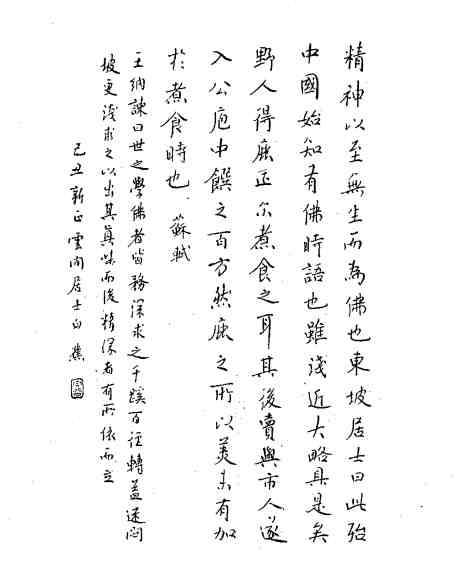 精神以至無生而為佛也東坡居士曰此殆
中國始知有佛時語也雖淺近大略具是矣
野人得鹿正尓煮食之耳其後賣與市人遂
入公庖中饌之百方然鹿之所以美未有加
於煮食時也 蘇軾
王納諫曰世之學佛者皆務深求之千蹊百徑轉益迷悶
坡更淺求之以出其真味而後精深者有所依而立
己丑新正雲間居士白蕉